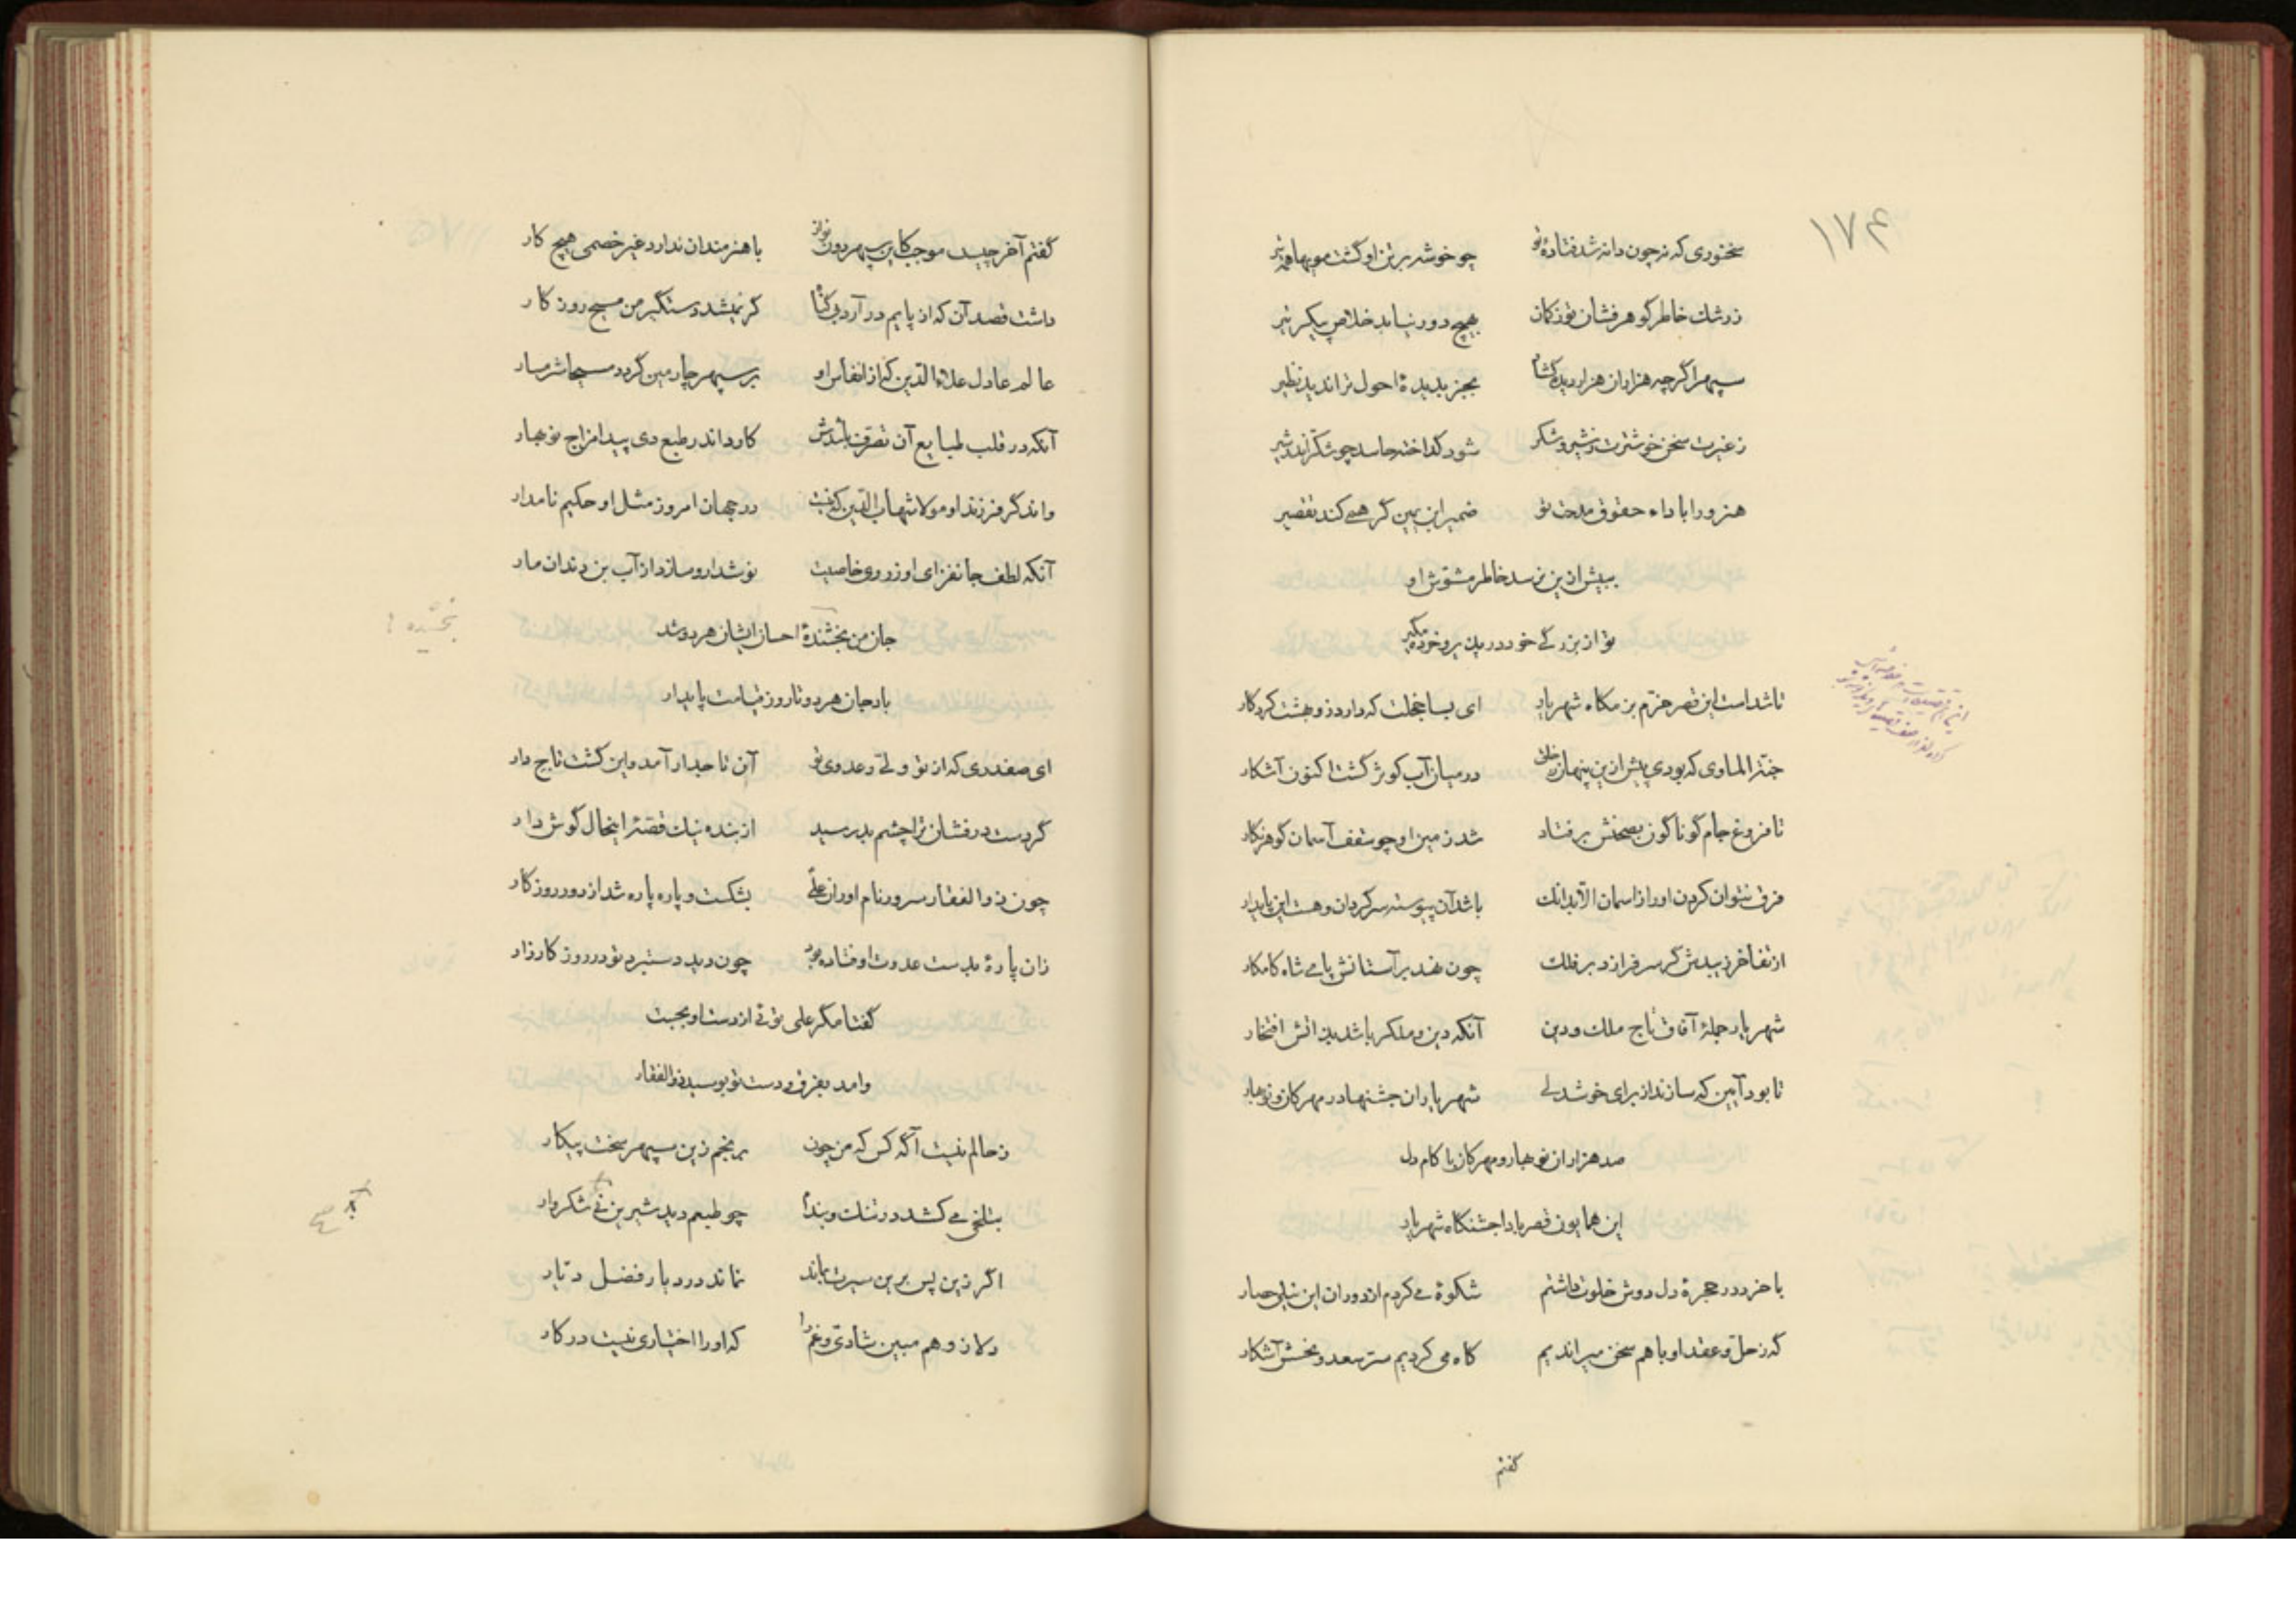 ۱۷۴
سخنوری که نه چون دانه شد فتادهٔ تو چو خوشه بر تن او گشت مویها همه تیر
ز رشک خاطر گوهر فشان تو زر کان بهیچ دور نیابد خلاص پیکر تیر
سپهر اگر چه هزاران هزار دیده گشاد بجز بدیدهٔ احول ترا ندید نظیر
ز غیرت سخن خوشترت ز شیر و شکر شود گداخته حاسد چو شکر اندر شیر
هنرورا باداء حقوق مدحت تو ضمیر ابن یمین گر همی کند تقصیر
ببیش ازین نرسد خاطر مشوش او
تو از بزرگی خود در پذیر و خرده مگیر
تا شداست این قصر خرم بزمگاه شهریار ای بسا خجلت که دارد زو بهشت کردگار
جنة الماوی که بودی پیش ازین پنهان ز خلق در میان آب کوثر گشت اکنون آشکار
تا فروغ جام گوناگون بصحنش بر فتاد شد زمین او چو سقف آسمان گوهرنگار
فرق نتوان کردن او را ز آسمان الا بدانک باشد آن پیوسته سرگردان و هست این پایدار
از تفاخر زیبدش گر سر فرازد بر فلک چون نهد بر آستانش پای شاه کامکار
شهریار جملهٔ آفاق تاج ملک و دین آنکه دین و ملک را باشد بذاتش افتخار
تا بود آیین که سازند از برای خوشدلی شهریاران جشنها در مهرکان و نوبهار
صد هزاران نوبهار و مهرکان با کام دل
این همایون قصر بادا جشنگاه شهریار
با خرد در حجرهٔ دل دوش خلوت داشتم شکوهٔ می کردم از دوران این نیلی حصار
که ز حل و عقد او با هم سخن میراندیم گاه می کردیم سر سعد و نحسش آشکار
گفتم
گفتم آخر چیست موجب کاین سپهر دون نواز با هنرمندان ندارد غیر خصمی هیچ کار
داشت قصد آن که از پایم در آرد بی گناه گر نمیشد دستگیر من مسیح روزگار
عالم عادل علاء الدین که از انفاس او بر سپهر چارمین گردد مسیحا شرمسار
آنکه در قلب طبایع آن تصرف باشدش کارد اندر طبع دی پیدا مزاج نوبهار
واندگر فرزند او مولا شهاب الدین که نیست در جهان امروز مثل او حکیم نامدار
آنکه لطف جانفزای او ز روی خاصیت نوشدارو سازد از آب بن دندان مار
جان من بخشندهٔ احسان ایشان هر دو شد
بخشیده ؟
باد جان هر دو تا روز قیامت پایدار
ای صفدری که از تو ولی و عدوی تو آن تاجدار آمد و این گشت تاج دار
گر دست درفشان ترا چشم بد رسید از بنده نیک قصهٔ اینحال گوش دار
چون ذوالفقار سرور نام اوران علی بشکست و پاره پاره شد از دور روزگار
زان پارهٔ بدست عدوت اوفتاده بود چون دید دستبرد تو در روز کارزار
گفتا مگر علی توئی از دست او بجست
وامد بفرق و دست تو بوسید ذوالفقار
ز حالم نیست آگه کس که من چون برنجم زین سپهر سخت پیکار
بتلخی می کشد در تنگ و بندم چو طبعم دید شیرین نی شکروار
اگر زین پس برین سیرت بماند نماند در دیار فضل دیار
دلا زو هم مبین شادی و غم را که او را اختیاری نیست در کار